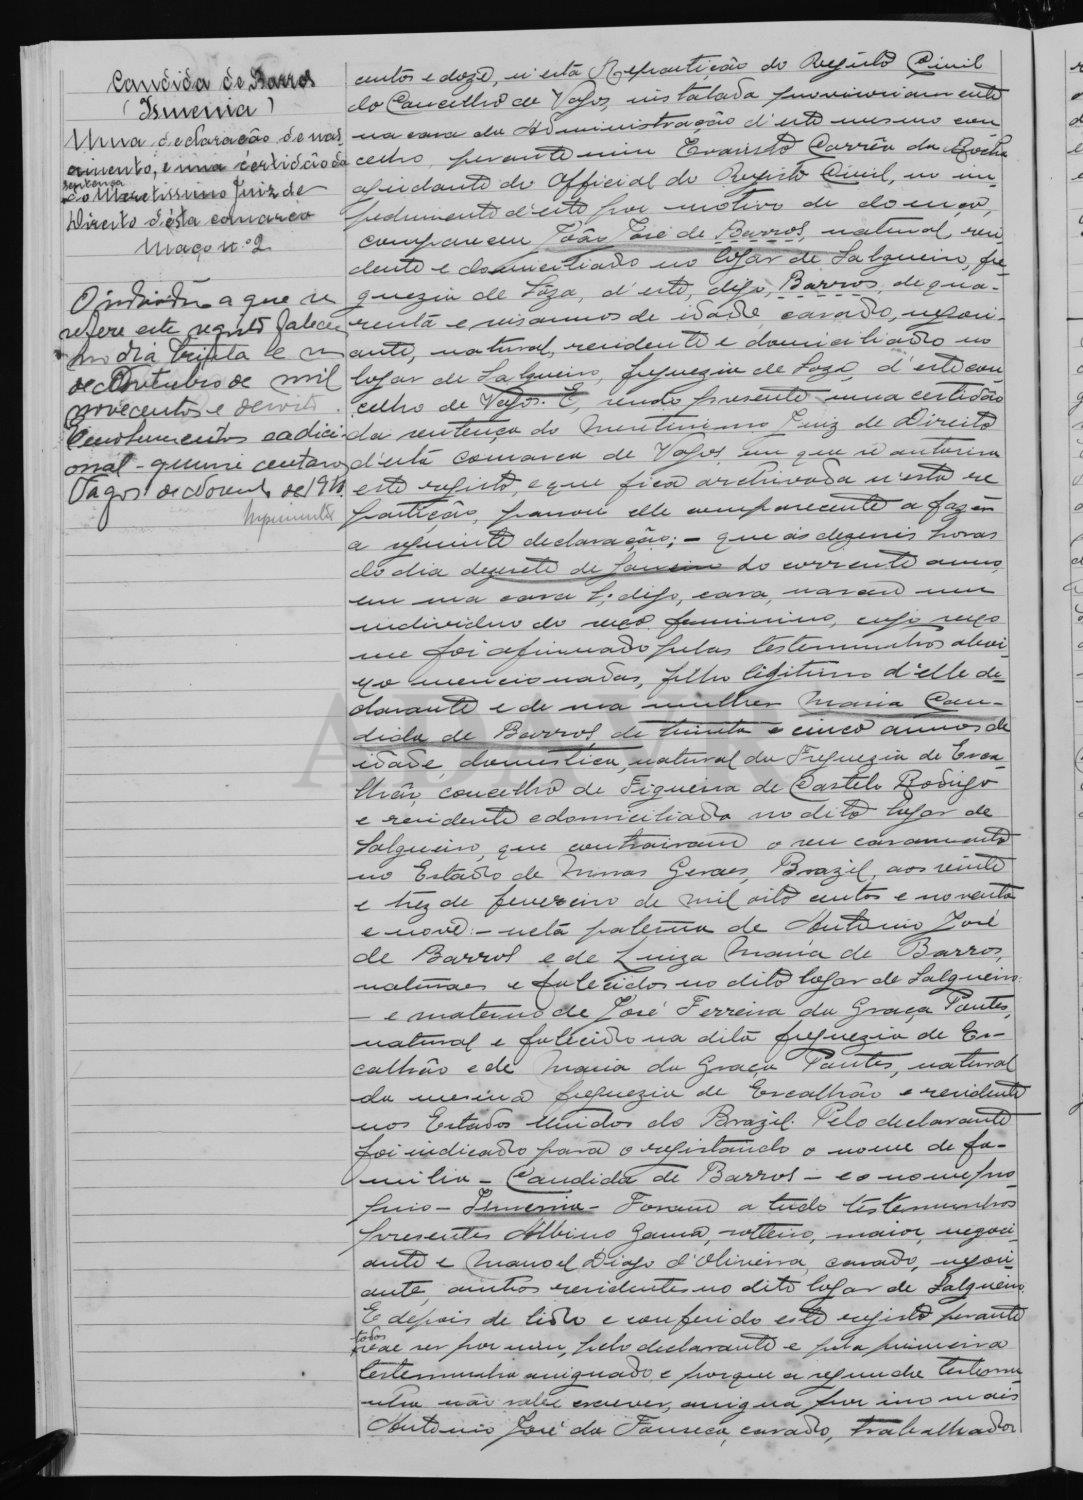 Candida de Barros
(Ismenia)
Uma declaração de nas-
cimento, e uma certidão da
sentença
do Meretissimo Juiz de
Direito d'esta comarca
Maço n.º 2
O individuo a que se
refere este registo faleceu
no dia trinta e um
de Outubro de mil
novecentos e dezoito.
Emolumentos e adici-
onal - quinze centavos
Vagos de Novembro de 1918.
centos e doze, n'esta Repartição do Registo Civil
do Concelho de Vagos, installada provisoriamente
na casa da Administração d'este mesmo con-
celho, perante mim Evaristo Corrêa da Rocha
ajudante do Official do Registo Civil, no im-
pedimento d'este por motivo de doença,
compareceu João José de Barros, natural, resi-
dente e domiciliado no logar de Salgueiro, fre-
guezia de Sôza, d'este, digo, Barros, de qua-
renta e seis annos de idade, casado, negoci-
ante, natural, residente e domiciliado no
logar de Salgueiro, freguezia de Soza, d'este con-
celho de Vagos. E, sendo presente uma certidão
da sentença do Meritissimo Juiz de Direito
d'esta comarca de Vagos, em que se autorisa
este registo, e que fica archivada n'esta re-
partição, passou elle comparecente a fazer
a seguinte declaração: - que ás dezeseis horas
do dia dezesete de Janeiro do corrente anno,
em sua casa digo, casa, nasceu um
individuo do sexo feminino, cujo sexo
me foi afirmado pelas testemunhas abai-
xo mencionadas, filho legitimo d'elle de-
clarante e de sua mulher Maria Can-
dida de Barros, de trinta e cinco annos de
idade, domestica, natural da Freguezia de Esca-
lhão, concelho de Figueira de Castelo Rodrigo
e residente e domiciliada no dito logar de
Salgueiro, que contrairam o seu casamento
no Estado de Minas Geraes, Brazil, aos vinte
e trez de fevereiro de mil oito centos e noventa
e nove: - neta paterna de Antonio José
de Barros e de Luiza Maria de Barros,
naturaes e falecidos no dito logar de Salgueiro:
- e materno de José Ferreira da Graça Pontes,
natural e falecido na dita freguezia de Es-
calhão e de Maria da Graça Pontes, natural
da mesma freguezia de Escalhão e residente
nos Estados Unidos do Brazil. Pelo declarante
foi indicado para o registando o nome de fa-
milia - Candida de Barros - e o nome pro-
prio - Ismenia - Foram a tudo testemunhas
presentes Albino Gama, solteiro, maior, negoci-
ante e Manoel Diogo d'Oliveira, casado, negoci-
ante, ambos residentes no dito logar de Salgueiro.
E depois de lido e conferido este registo perante
todos
vae ser por mim, pelo declarante e pela primeira
testemunha assignado, e porque a segunda testemu-
nha não sabe escrever, assigna por isso mais
Antonio José da Fonseca, casado, trabalhador
ADAVR